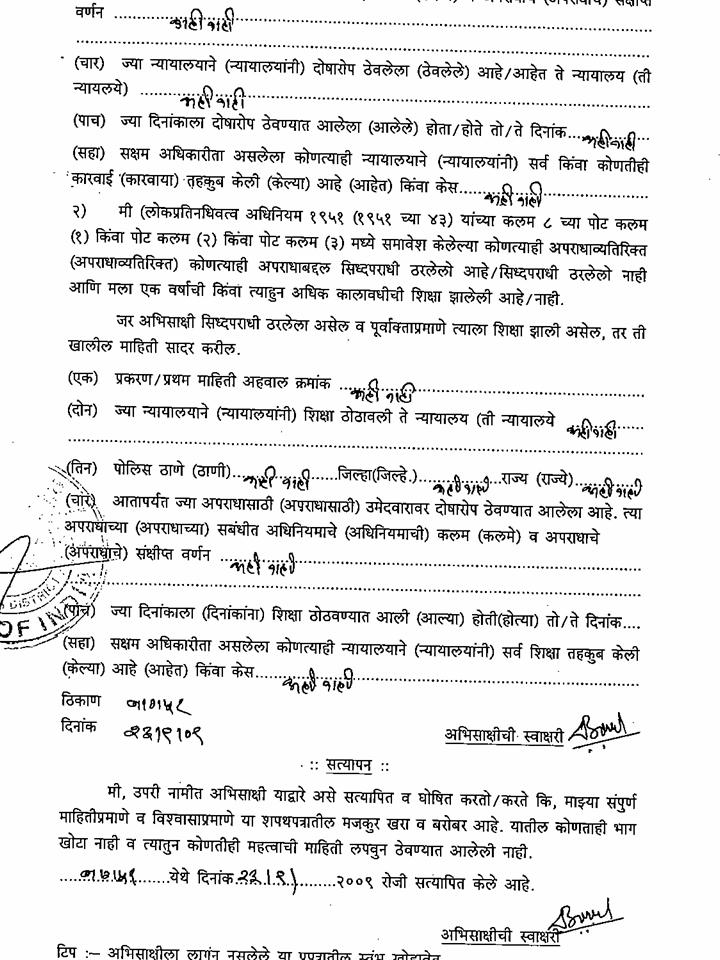 वर्णन ........काही नाही........
(चार) ज्या न्यायालयाने (न्यायालयांनी) दोषारोप ठेवलेला (ठेवलेले) आहे/आहेत ते न्यायालय (ती
न्यायलये) ........काही नाही........
(पाच) ज्या दिनांकाला दोषारोप ठेवण्यात आलेला (आलेले) होता/होते तो/ते दिनांक....काही नाही
(सहा) सक्षम अधिकारीता असलेला कोणत्याही न्यायालयाने (न्यायालयांनी) सर्व किंवा कोणतीही
कारवाई (कारवाया) तहकुब केली (केल्या) आहे (आहेत) किंवा केस........काही नाही........
२) मी (लोकप्रतिनधिवत्व अधिनियम १९५१ (१९५१ च्या ४३) यांच्या कलम ८ च्या पोट कलम
(१) किंवा पोट कलम (२) किंवा पोट कलम (३) मध्ये समावेश केलेल्या कोणत्याही अपराधाव्यतिरिक्त
(अपराधाव्यतिरिक्त) कोणत्याही अपराधाबद्दल सिध्दपराधी ठरलेलो आहे/सिध्दपराधी ठरलेलो नाही
आणि मला एक वर्षाची किंवा त्याहुन अधिक कालावधीची शिक्षा झालेली आहे/नाही.
जर अभिसाक्षी सिध्दपराधी ठरलेला असेल व पूर्वाक्ताप्रमाणे त्याला शिक्षा झाली असेल, तर ती
खालील माहिती सादर करील.
(एक) प्रकरण/प्रथम माहिती अहवाल क्रमांक ....काही नाही........
(दोन) ज्या न्यायालयाने (न्यायालयांनी) शिक्षा ठोठावली ते न्यायालय (ती न्यायालये काही नाही
(तिन) पोलिस ठाणे (ठाणी)....काही नाही.....जिल्हा(जिल्हे.)...काही नाही...राज्य (राज्ये)...काही नाही
(चार) आतापर्यत ज्या अपराधासाठी (अपराधासाठी) उमेदवारावर दोषारोप ठेवण्यात आलेला आहे. त्या
अपराधाच्या (अपराधाच्या) सबंधीत अधिनियमाचे (अधिनियमाची) कलम (कलमे) व अपराधाचे
(अपराधाचे) संक्षीप्त वर्णन ....काही नाही........
DISTRICT
OF INDIA
(पाच) ज्या दिनांकाला (दिनांकांना) शिक्षा ठोठवण्यात आली (आल्या) होती(होत्या) तो/ते दिनांक....
(सहा) सक्षम अधिकारीता असलेला कोणत्याही न्यायालयाने (न्यायालयांनी) सर्व शिक्षा तहकुब केली
(केल्या) आहे (आहेत) किंवा केस........काही नाही........
ठिकाण
दिनांक
अभिसाक्षीची स्वाक्षरी
:: सत्यापन ::
मी, उपरी नामीत अभिसाक्षी याद्वारे असे सत्यापित व घोषित करतो/करते कि, माझ्या संपुर्ण
माहितीप्रमाणे व विश्वासाप्रमाणे या शपथपत्रातील मजकुर खरा व बरोबर आहे. यातील कोणताही भाग
खोटा नाही व त्यातुन कोणतीही महत्वाची माहिती लपवुन ठेवण्यात आलेली नाही.
येथे दिनांक ........२००९ रोजी सत्यापित केले आहे.
अभिसाक्षीची स्वाक्षरी
टिप :— अभिसाक्षीला लागुन नसलेले या प्रपत्रातील स्तंभ